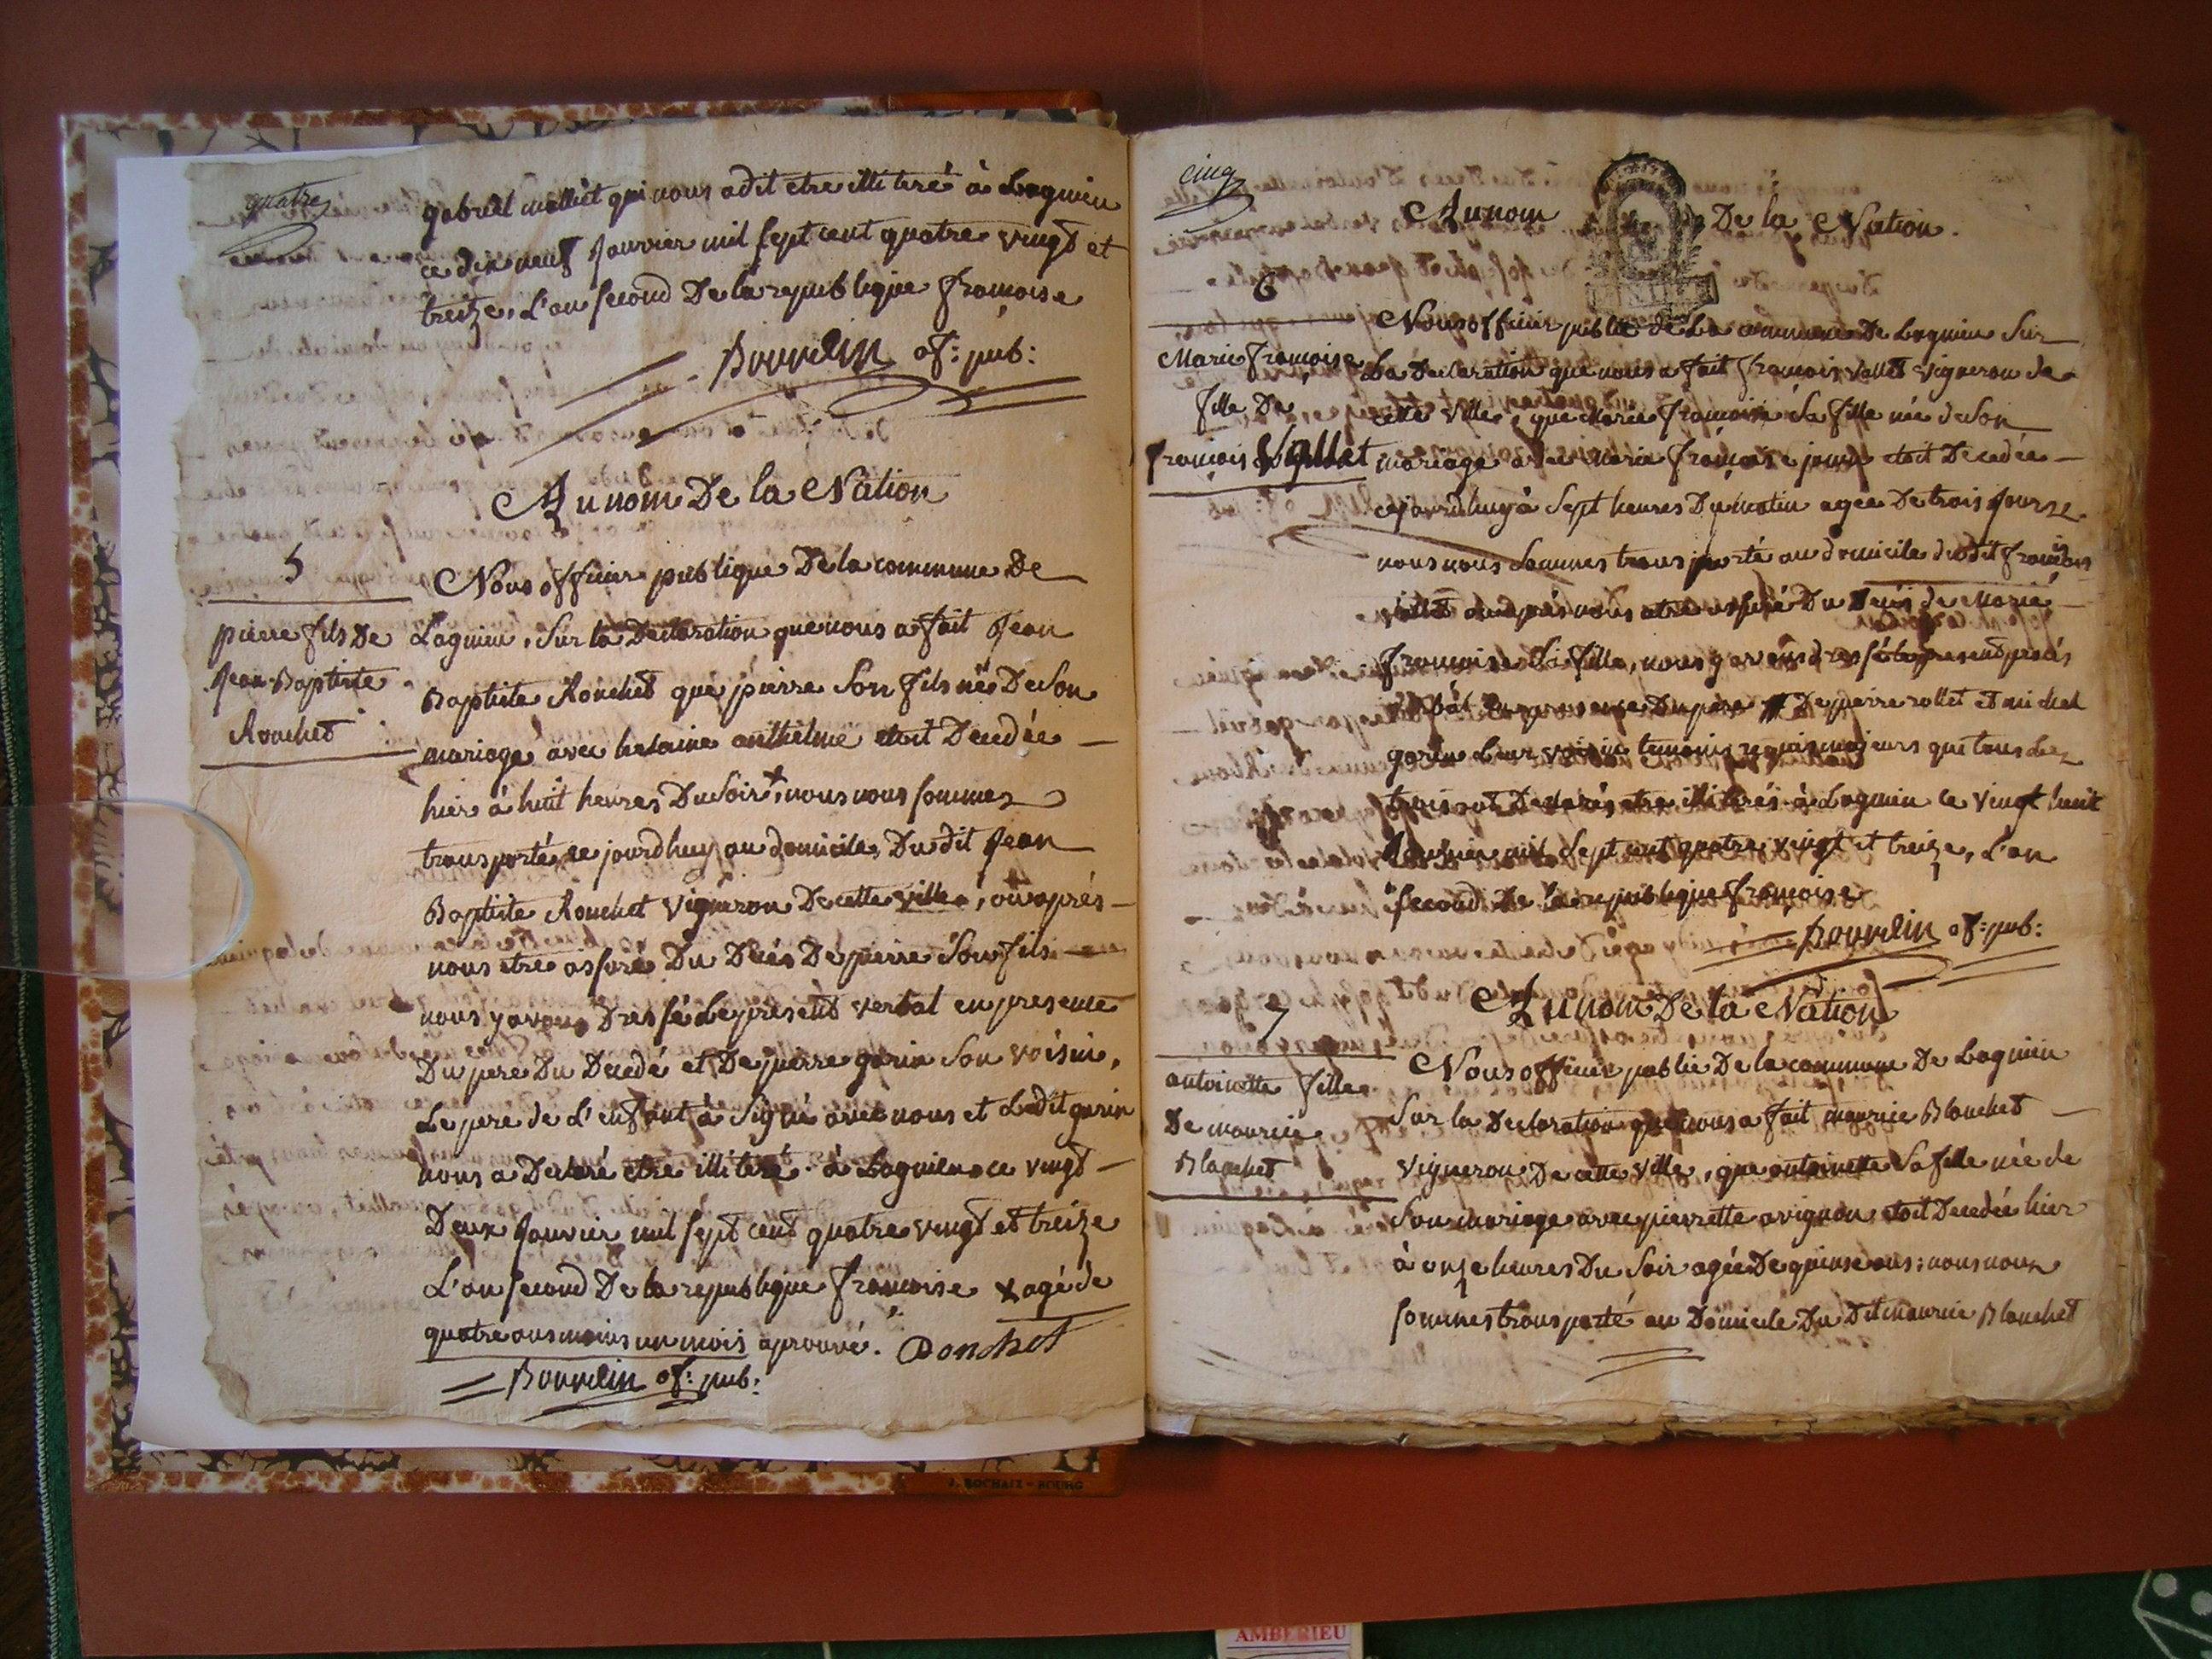 quatre
gabriel molliet qui nous a dit etre illiteré à Lagnieu
ce dix neuf Janvier mil sept cent quatre vingt et
treize, L'an second De la republique francoise
Bourdin of: pub:
Au nom De la Nation
5
pierre fils De
Jean-Baptiste
Rouchet
Nous officier publique De la commune De
Lagnieu, Sur la Declaration que nous a fait Jean
Baptiste Rouchet que pierre Son fils né De Son
mariage avec helaine anthelme etoit Decedée
hier à huit heures Du Soir +, nous nous sommes
transporté ce jourdhuy au domicile Du dit Jean
Baptiste Rouchet vigneron De cette ville, ou après
nous etre assuré Du Decés De pierre Son fils
nous y avons Dressé Le present verbal en presence
Du pere Du Decedé et De pierre garin Son voisin,
Le pere de L'enfant à Signé avec nous et Ledit garin
nous a Declaré etre illiteré. à Lagnieu ce vingt
Deux Janvier mil sept cent quatre vingt et treize
L'an second De la republique francoise x agé de
quatre ans moins un mois aprouvé. Ronchet
Bourdin of: pub:
J. ROCHAIX - BOURG
cinq
Au nom De la Nation.
6
Marie françoise
fille De
françois Vallet
Nous officier public de La commune De Lagnieu Sur
La Declaration que nous a fait francois vallet vigneron de
cette ville, que Marie francoise Sa fille née de Son
mariage avec Marie françoise etoit Decedée
cejourdhuy à Sept heures Du matin agée De trois jours
nous nous Sommes transporté au domicile dudit francois
vallet ou après nous etre assuré Du Decés de Marie
francoise Sa fille, nous y avons dressé le present
verbal en presence Du pere De pierre rollet et michel
garin Leur voisin temoins requis majeurs qui tous Les
trois ont Declarés etre illiterés à Lagnieu ce vingt huit
Janvier mil Sept cent quatre vingt et treize, L'an
second De la republique françoise
Bourdin of: pub:
Au nom De la Nation
7
antoinette fille
De maurice
Blanchet
Nous officier public De la commune De Lagnieu
Sur la Declaration que nous a fait maurice Blanchet
vigneron De cette ville, que antoinette Sa fille née de
Son mariage avec pierrette avignon etoit Decedée hier
à onze heures Du Soir agée De quinse ans: nous nous
sommes transporté au Domicile Du Dit maurice Blanchet
AMBERIEU